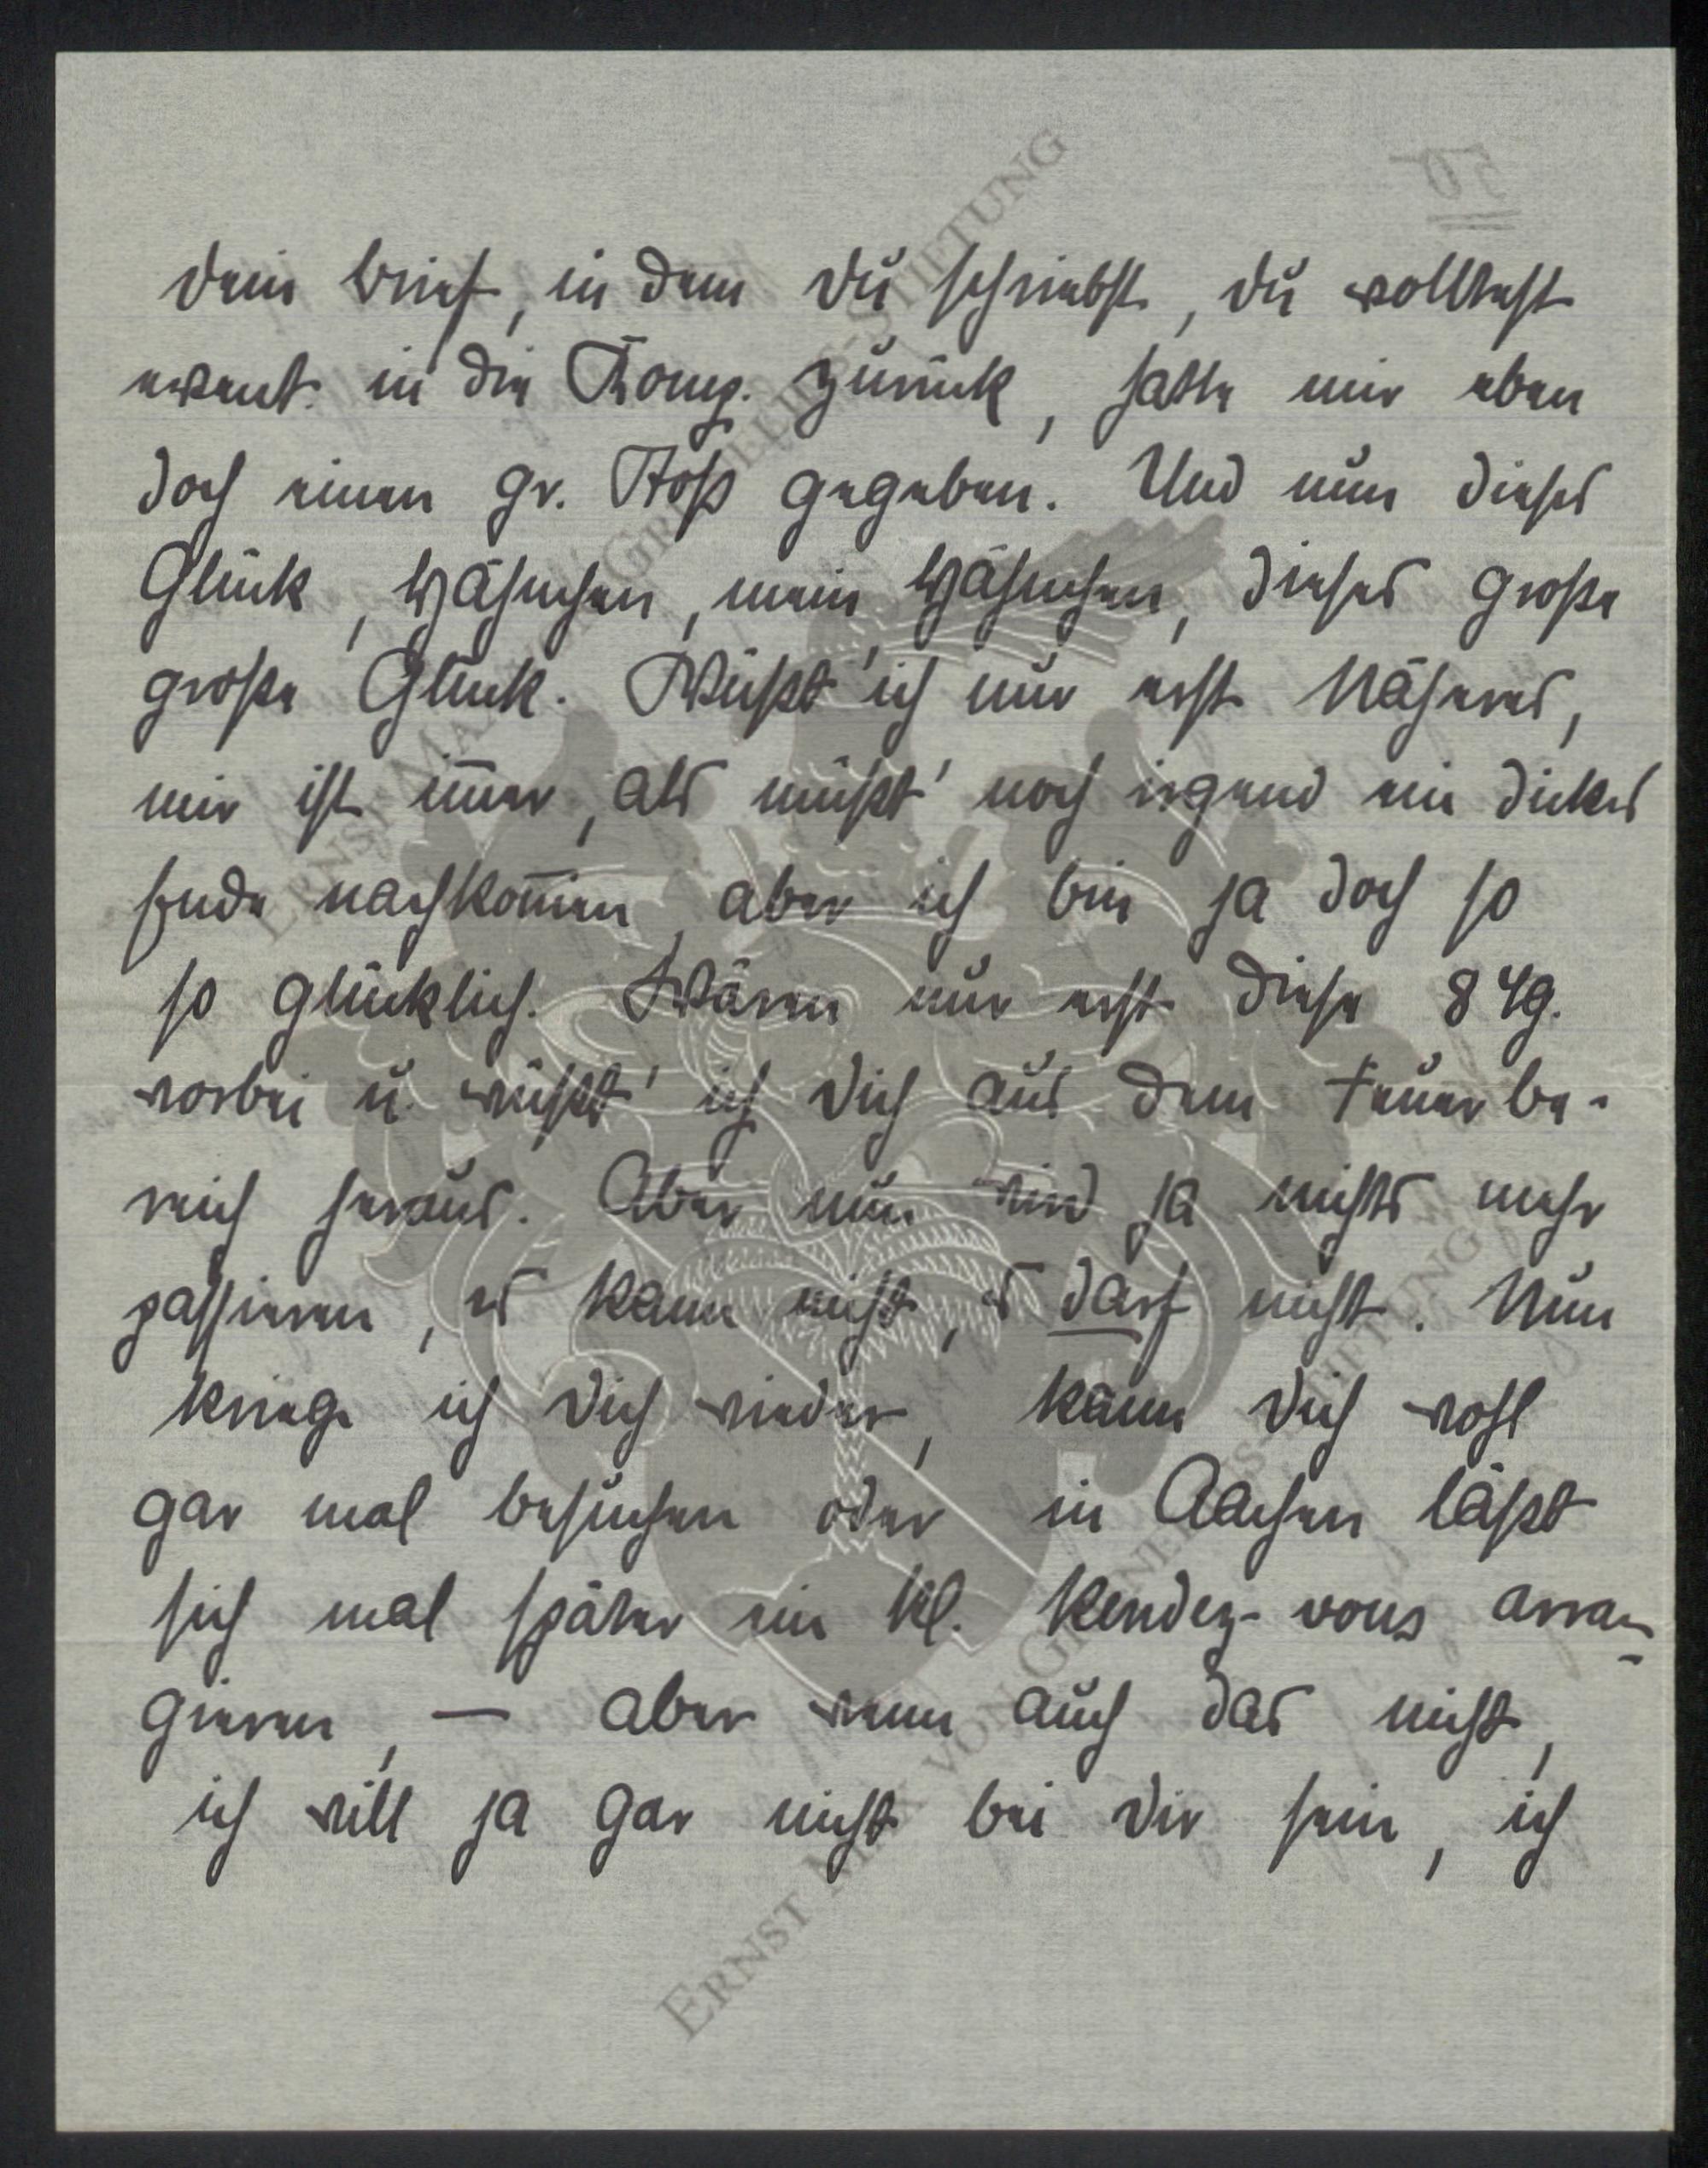 50
Dein Brief, in dem Du schriebst, Du wolltest
event. in die Komp. zurück, hatte mir eben
doch einen gr. Stoß gegeben. Und nun dieses
Glück, Hähnchen, mein Hähnchen, dieses große
große Glück. Wüßt' ich nur erst Näheres,
mir ist im̄er, als müßt' noch irgend ein dickes
Ende nachkom̄en, aber ich bin ja doch so
so glücklich. Wären nur erst diese 8 Tg.
vorbei u. wüßt' ich Dich aus dem Feuerbe-
reich heraus. Aber nun wird ja nichts mehr
passieren, es kann nicht, es darf nicht. Nun
kriege ich Dich wieder, kann Dich wohl
gar mal besuchen oder in Aachen läßt
sich mal später ein kl. Rendez-vous arran-
gieren, — aber wenn auch das nicht,
ich will ja gar nicht bei Dir sein, ich
ERNST MAX VON GRUNELIUS-STIFTUNG
ERNST MAX VON GRUNELIUS-STIFTUNG